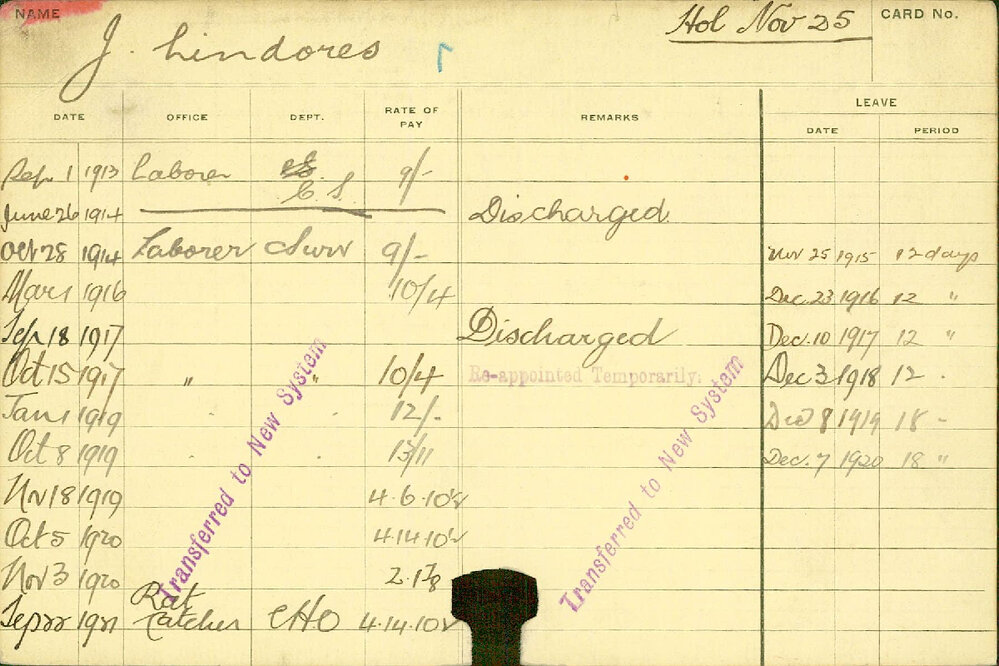 NAME
J. Lindores
Hol Nov 25
CARD No.
DATE OFFICE DEPT. RATE OF PAY REMARKS LEAVE
DATE PERIOD
Sep. 1 1913 Laborer C.S. 9/-
June 26 1914 Discharged
Oct 28 1914 Laborer Surv 9/- Nov 25 1915 12 days
Mar 1 1916 10/4 Dec. 23 1916 12 "
Sep 18 1917 Discharged Dec. 10 1917 12 "
Oct 15 1917 " " 10/4 Re-appointed Temporarily. Dec 3 1918 12 .
Jan 1 1919 12/- Dec 8 1919 18 -
Oct 8 1919 13/11 Dec. 7 1920 18 "
Nov 18 1919 4.6.10
Oct 5 1920 4.14.10
Nov 3 1920
Rat
Sep 22 1921 Catcher CHO 4.14.10
Transferred to New System
Transferred to New System